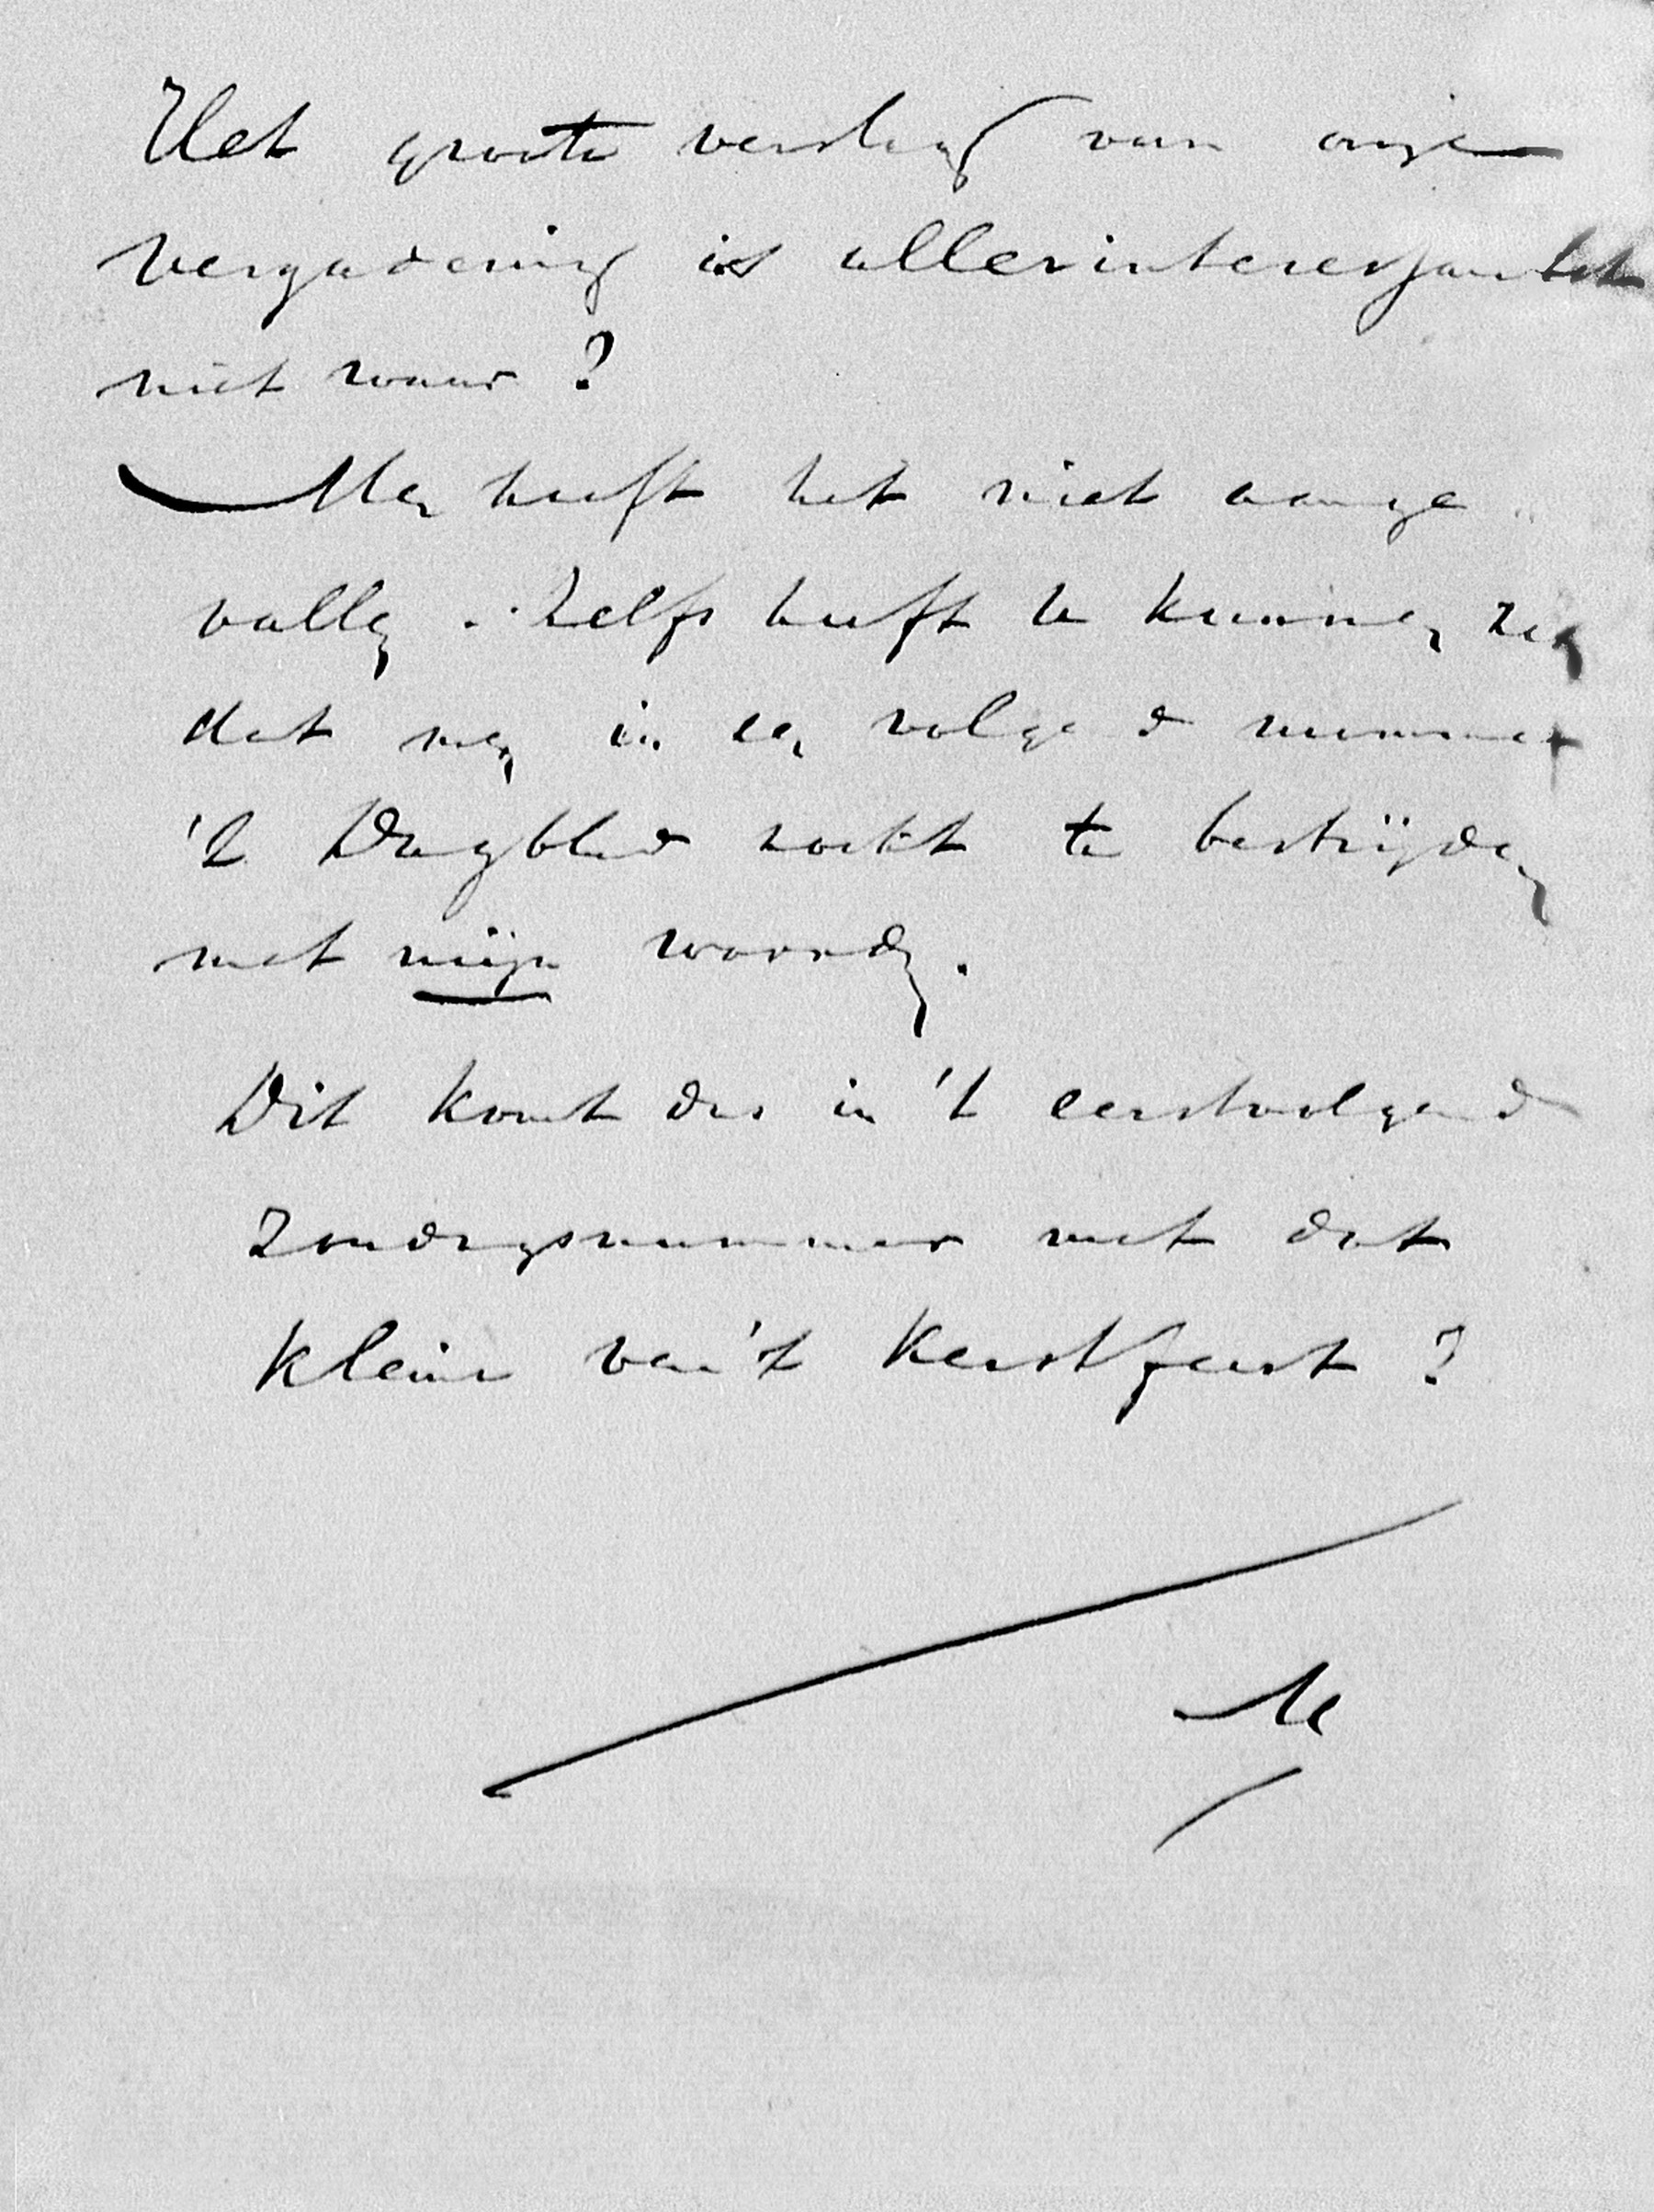 Het groote verslag van onze
vergadering is allerinteressantst
niet waar?
Men heeft het niet aange
vallen. Zelfs heeft te kunnen zeg
dat men in een volgend nummer
't Dagblad zoekt te bestrijden
met mijn woorden.
Dit komt dus in 't eerstvolgend
Zondagsnummer met dat
klein van 't Kerstfeest?
M